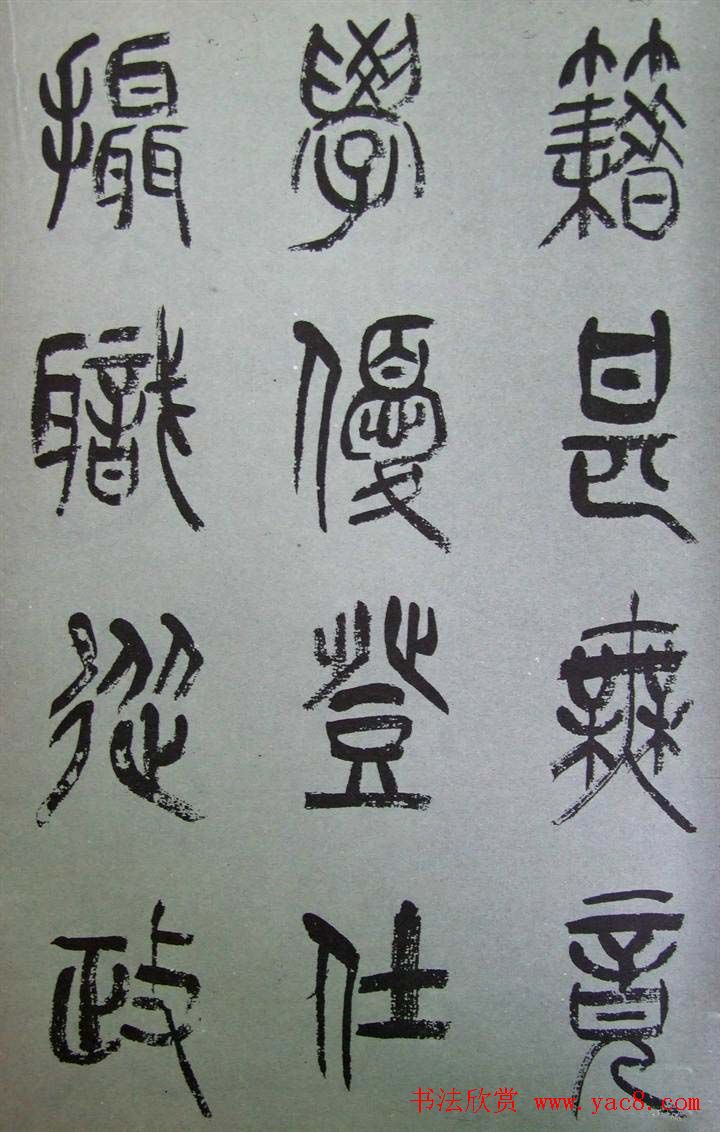 籍甚無竟
學優登仕
攝職從政
书法欣赏 www.yac8.com